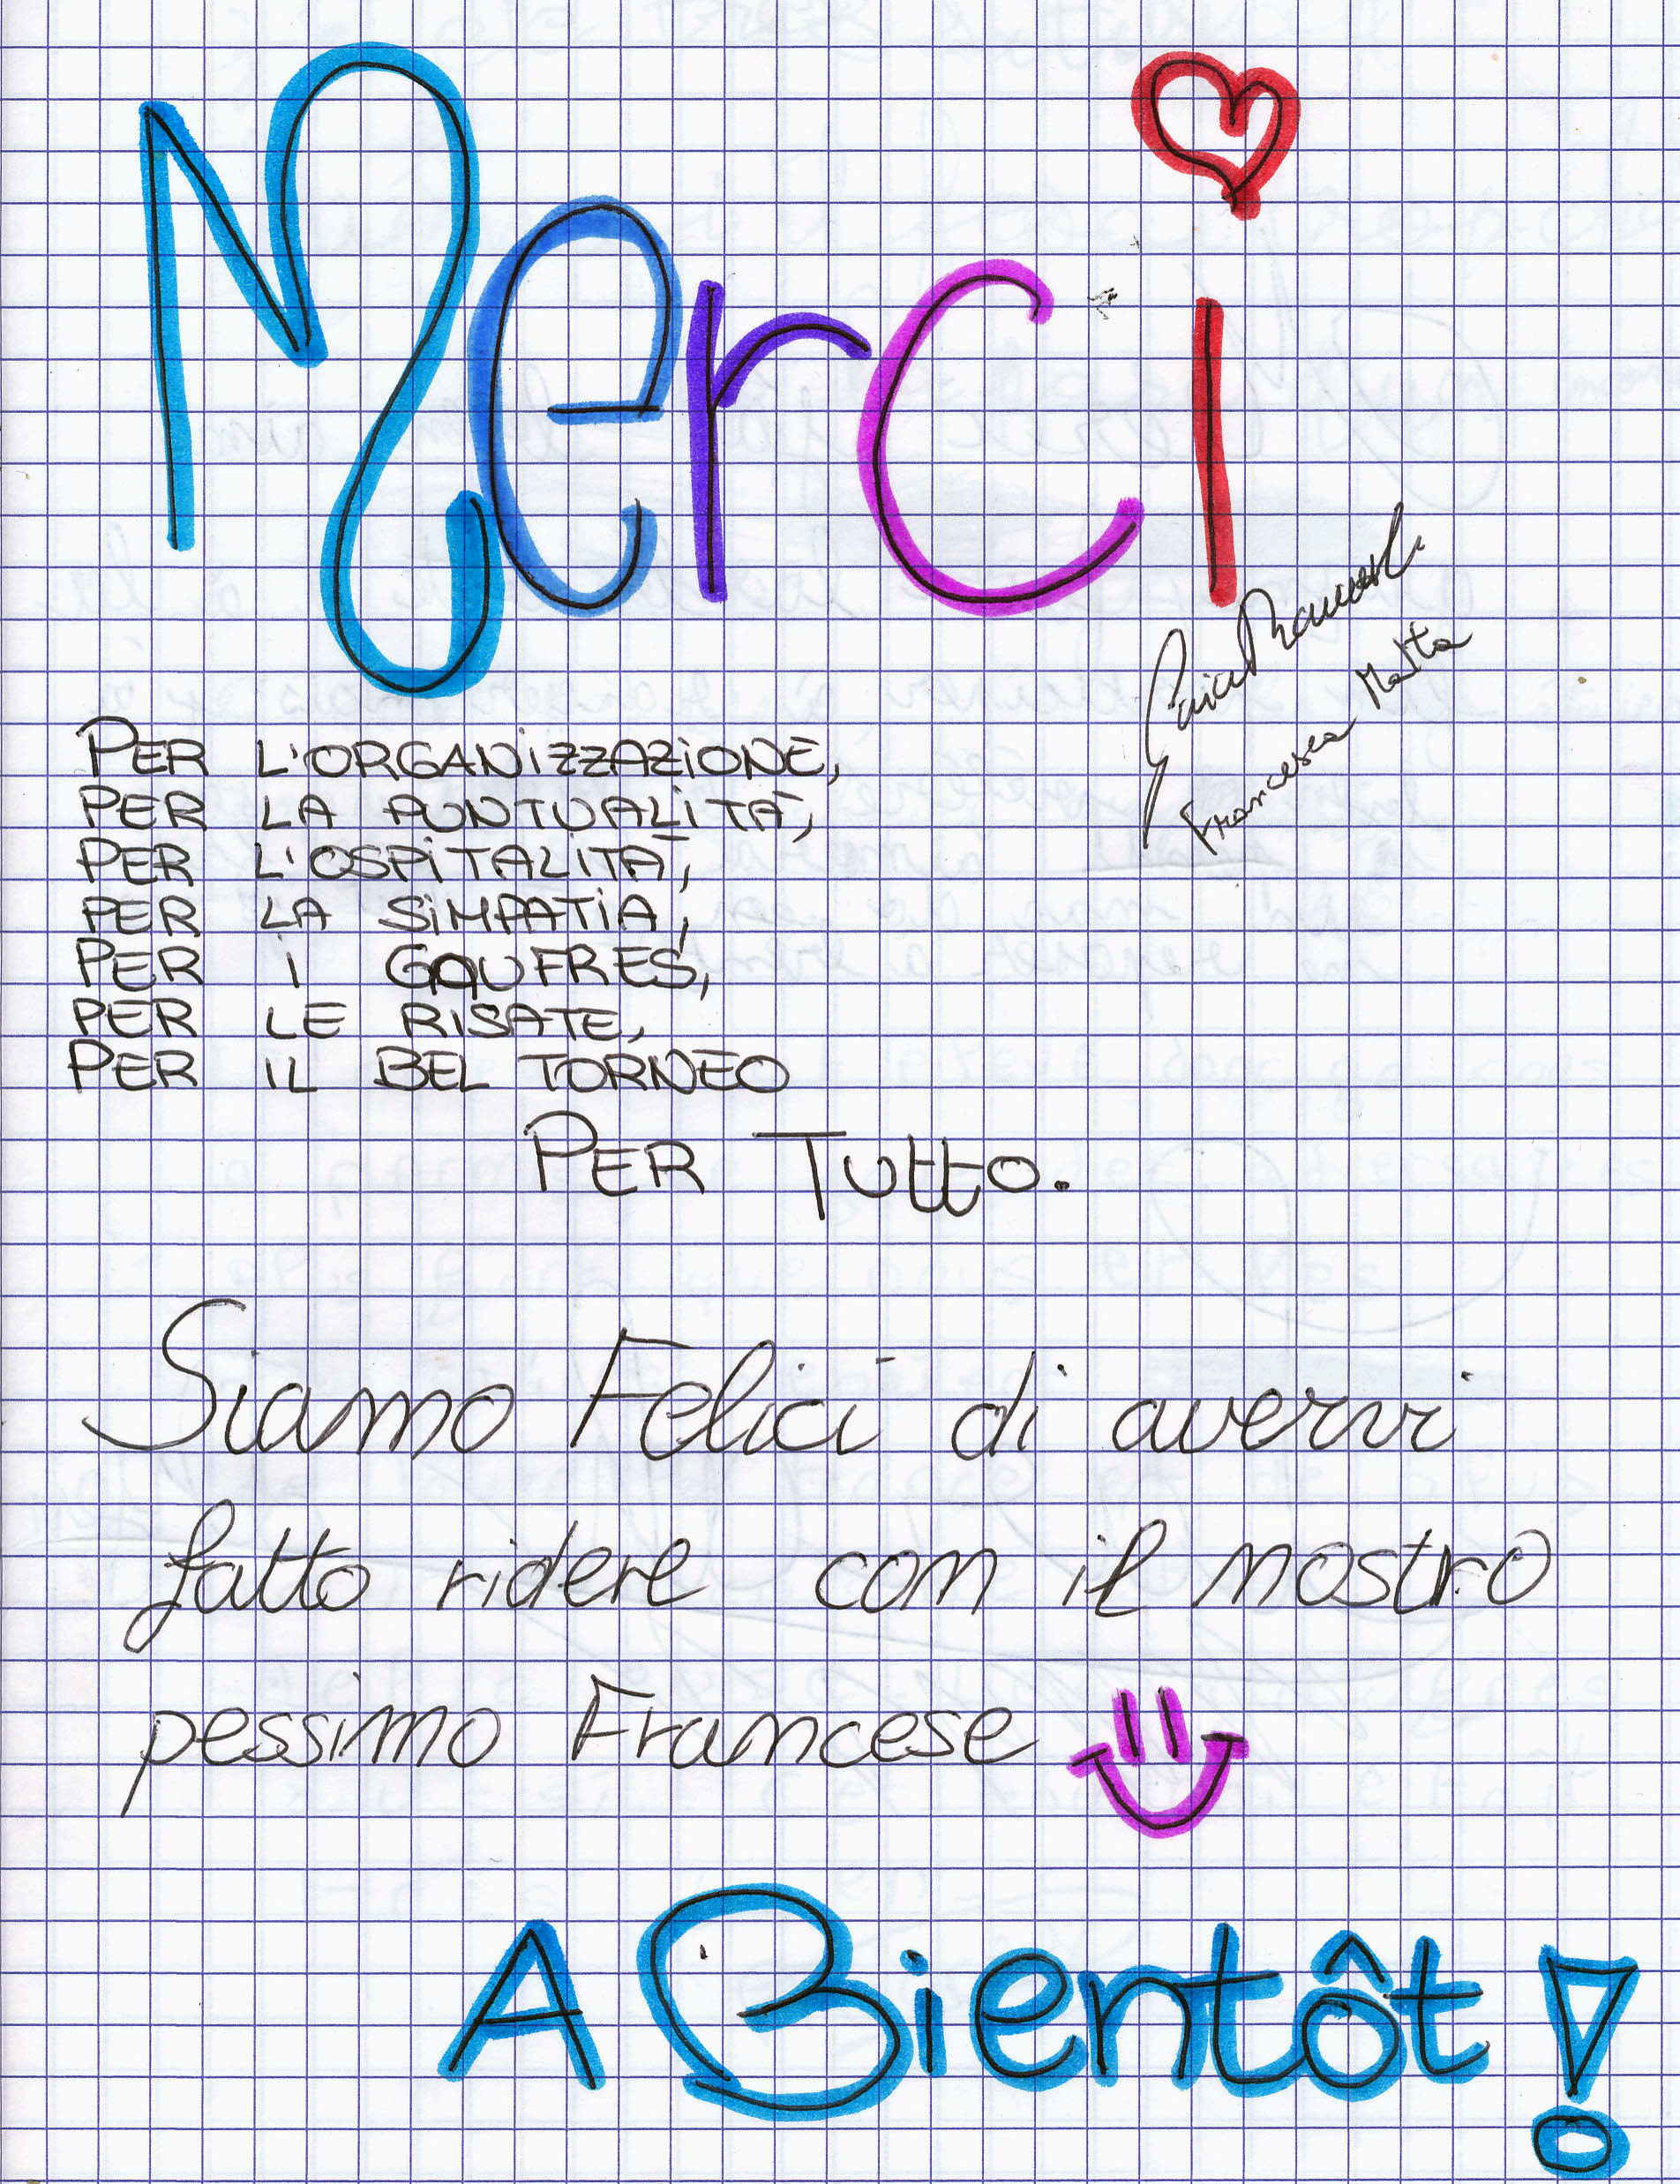 Merci
Francesca
PER L'ORGANIZZAZIONE,
PER LA PUNTUALITÀ,
PER L'OSPITALITÀ,
PER LA SIMPATIA,
PER I GAUFRES,
PER LE RISATE,
PER IL BEL TORNEO
PER TUTTO.
Siamo Felici di avervi
fatto ridere con il nostro
pessimo Francese
A Bientôt !